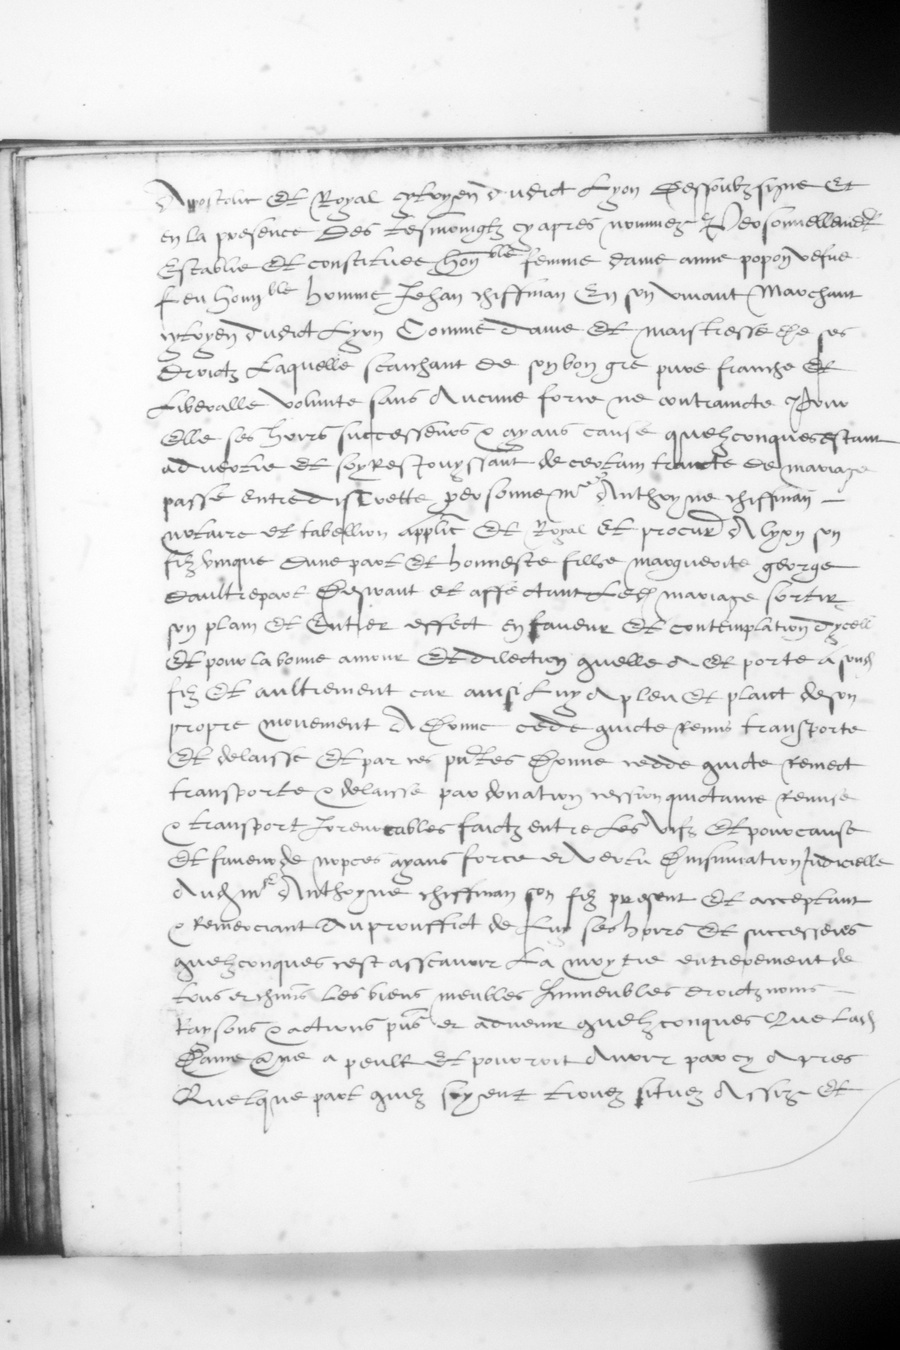 Apostolic Et Royal cytoyen dudict Lyon Dessoubz signe Et
en la presence Des tesmoingtz cy apres nommez Personnellement
Establie Et constituee hon ble femme dame anne popon vefve
feu honn ble homme Jehan chiffman En son vivant Marchant
cytoyen dudict Lyon Comme dame Et maistresse de ses
droictz Laquelle scaichant de son bon gre pure franche Et
Liberalle volunte sans Aucune force ne contraincte Pour
Elle ses hoirs successeurs & ayans cause quelzconques estant
advertie Et soy Resjouyssant de certain traicte de mariage
passe entre discrette personne me Anthoyne chiffman
notaire et tabellion applic Et Royal Et procur A lyon son
filz unique dune part Et honneste fille marguerite george
daultrepart Desirant et affectant Led mariage sortir
son plain Et Entier effect en faveur Et contemplation dycell
Et pour la bonne amour Et dilection quelle a Et porte a sond
filz Et aultrement car ainsi Luy A pleu Et plaict de son
propre mouvement A Donne cede quicte Remis transporte
Et delaisse Et par ces pntes Donne cedde quicte Remect
transporte & delaisse par donation cession quictance Remise
& transport Irrevocables faictz entre Les vifz Et pour cause
Et faveur de nopces ayans force et vertu Dinsinuation Judicielle
Aud me Anthoyne chiffman son filz present Et acceptant
& Remerciant Au prouffict de Luy ses hoirs Et successeurs
quelzconques cest asscavoir La moytie entierement de
tous et chūns Les biens meubles Immeubles droictz noms
Raysons & actions pns et advenir quelzconques Que lad
Dame Anne a peult et pourroit Avoir par cy Apres
Quelque part quilz soyent trouez situez Assiz Et